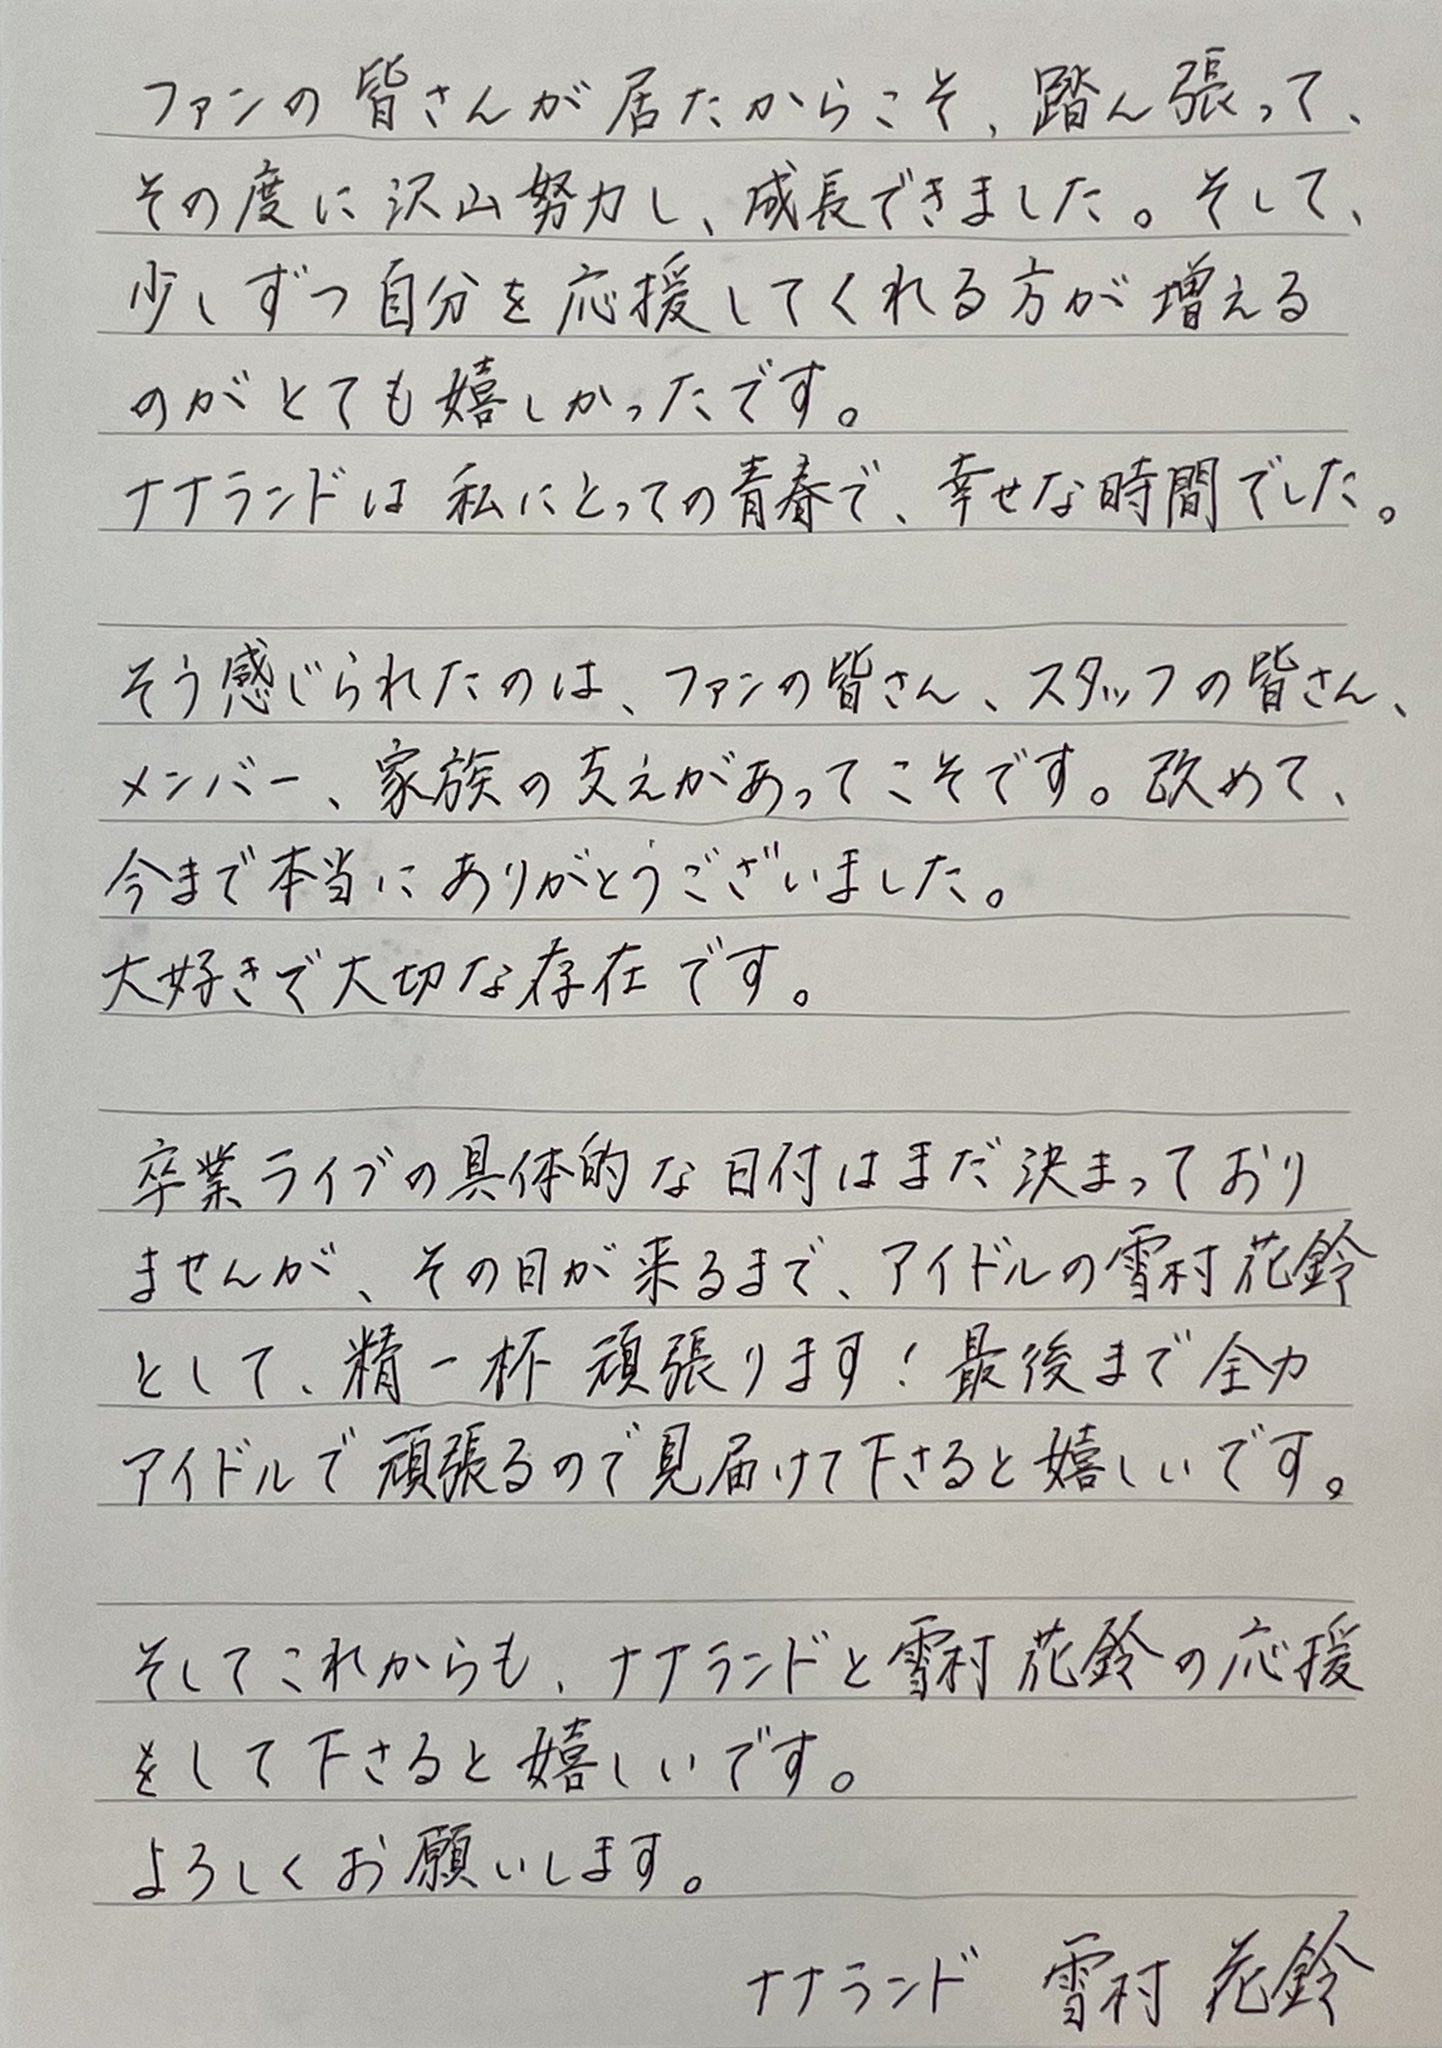 ファンの皆さんが居たからこそ、踏ん張って、
その度に沢山努力し、成長できました。そして、
少しずつ自分を応援してくれる方が増える
のがとても嬉しかったです。
ナナランドは私にとっての青春で、幸せな時間でした。
そう感じられたのは、ファンの皆さん、スタッフの皆さん、
メンバー、家族の支えがあってこそです。改めて、
今まで本当にありがとうございました。
大好きで大切な存在です。
卒業ライブの具体的な日付はまだ決まっており
ませんが、その日が来るまで、アイドルの雪村花鈴
として、精一杯頑張ります！最後まで全力
アイドルで頑張るので見届けて下さると嬉しいです。
そしてこれからも、ナナランドと雪村花鈴の応援
をして下さると嬉しいです。
よろしくお願いします。
ナナランド 雪村 花鈴